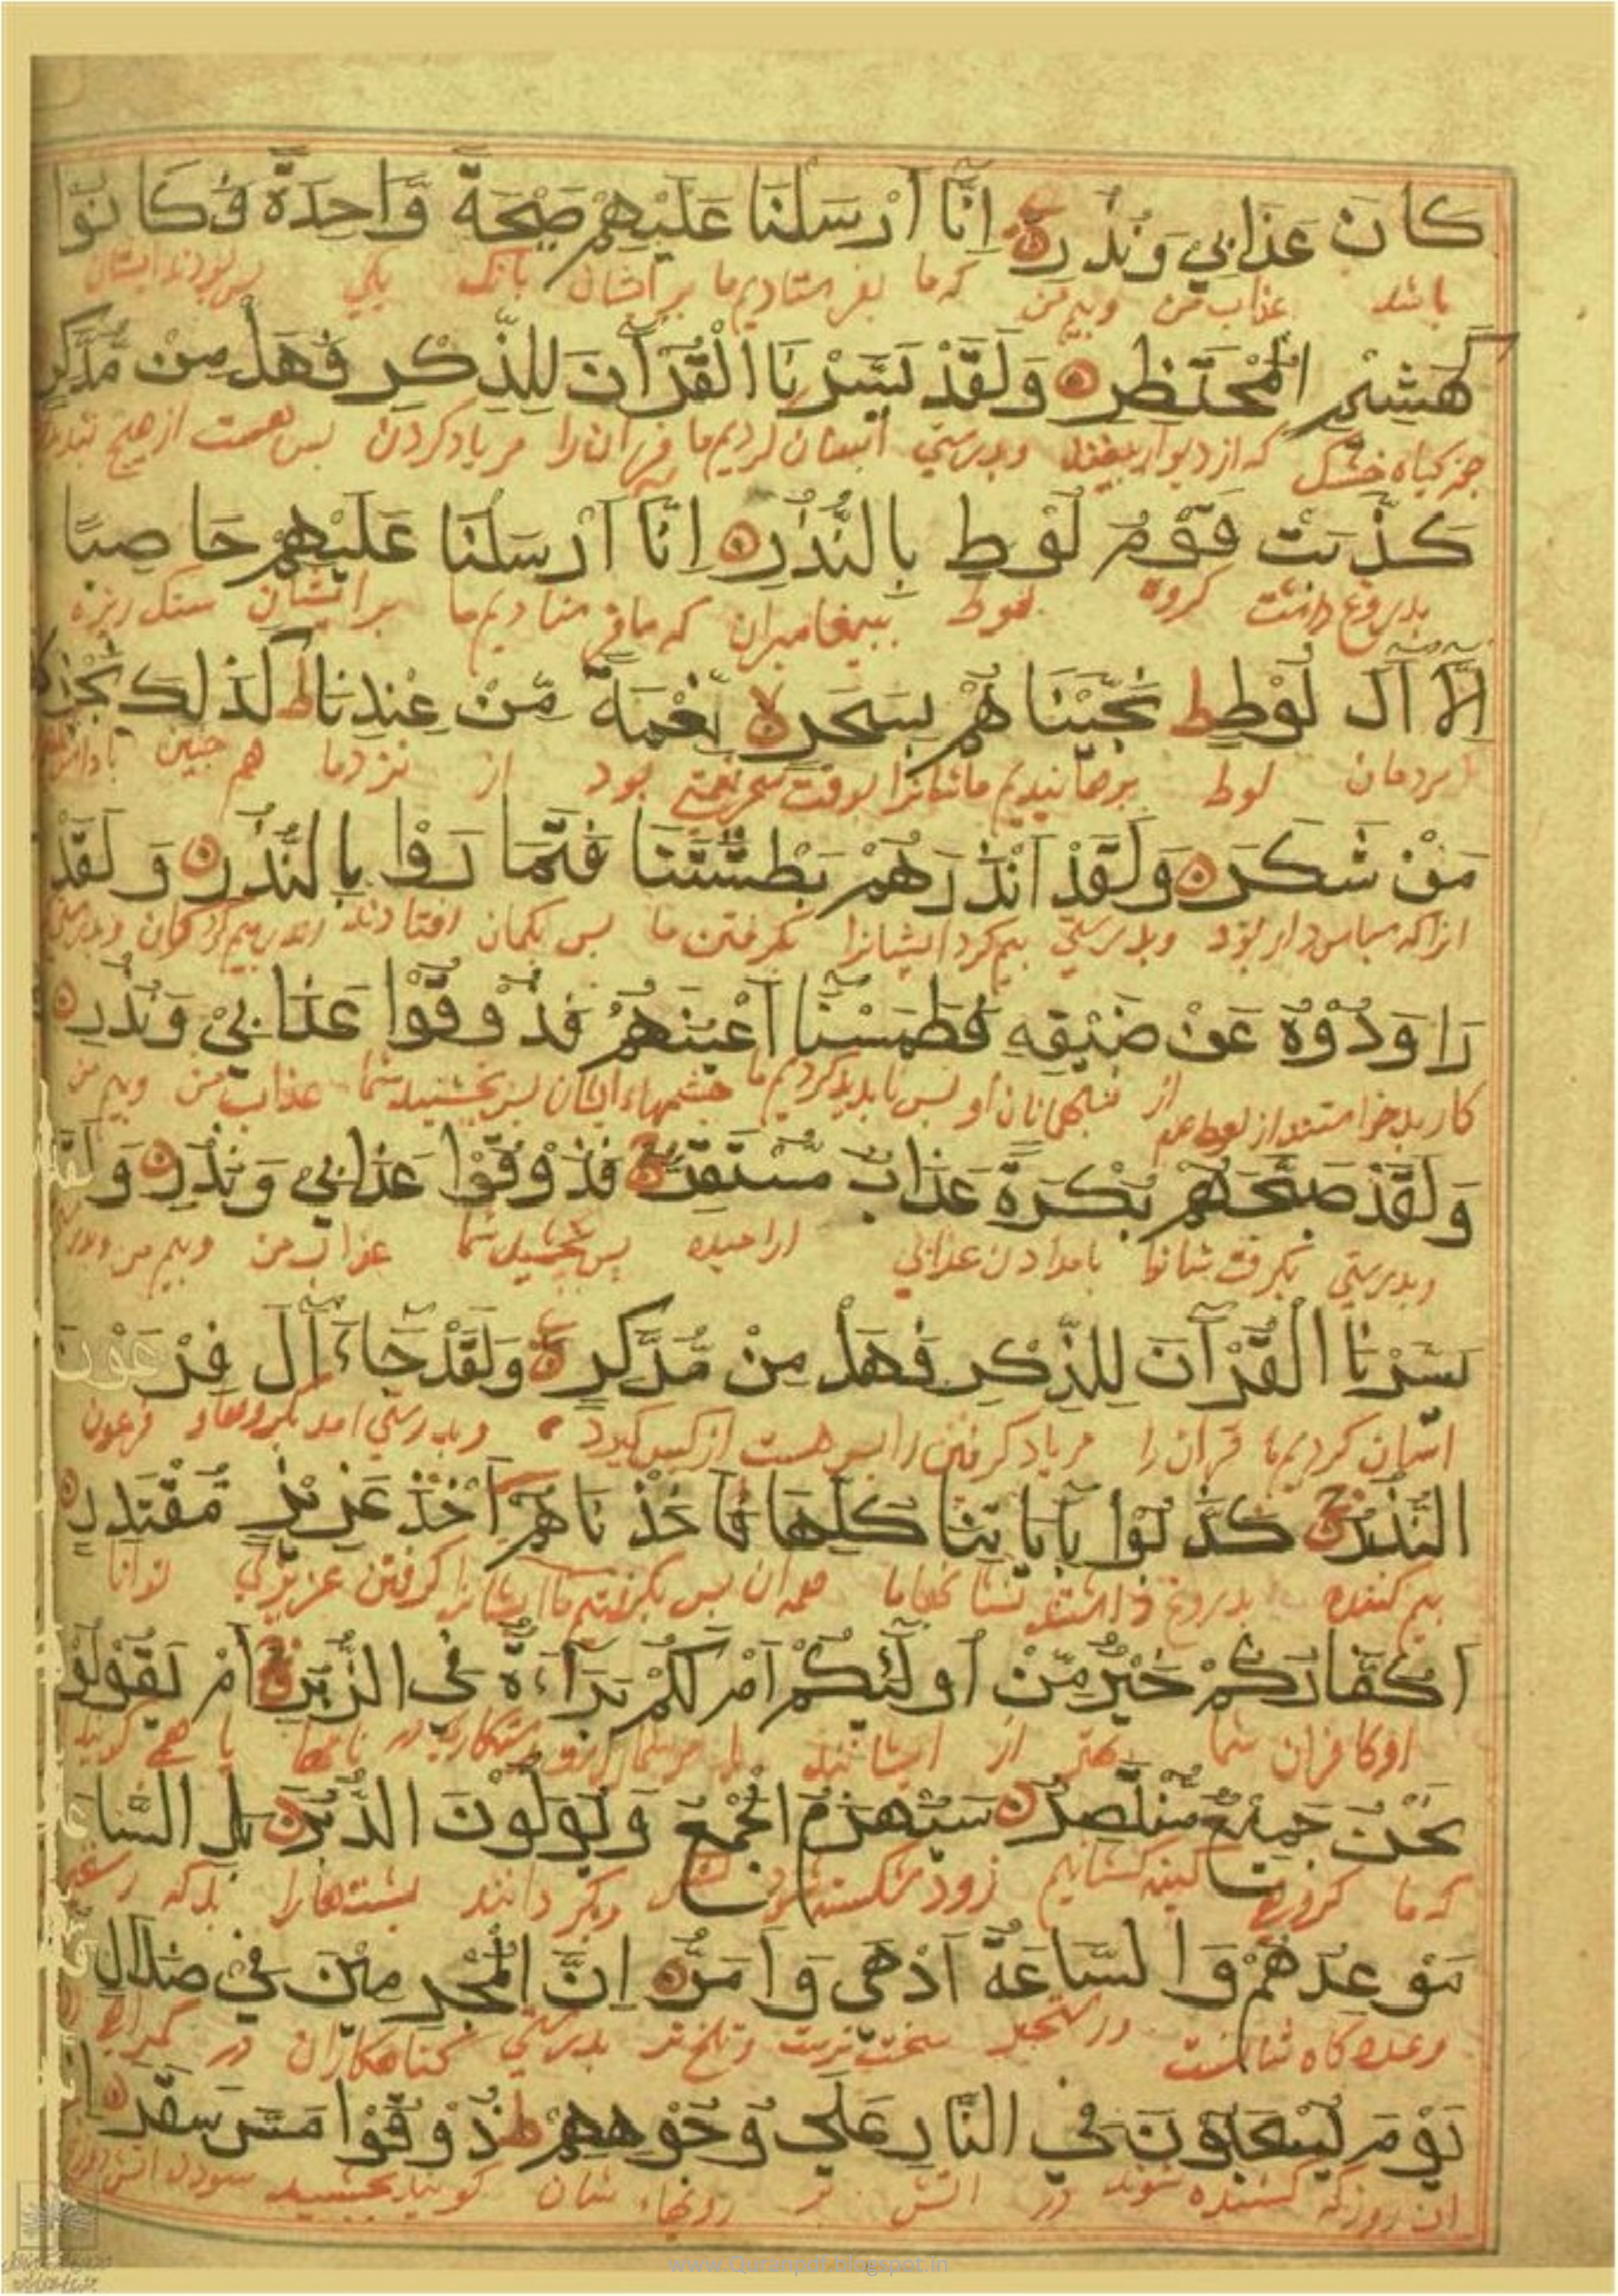 كَانَ عَذَابِي وَنُذُرِ اِنَّا اَرْسَلْنَا عَلَيْهِمْ صَيْحَةً وَّاحِدَةً فَكَانُوْا
باشد عذاب من وبیم من که ما بفرستادیم ما بر ایشان بانک یکی پس بودند ایشان
كَهَشِيْمِ الْمُحْتَظِرِ وَلَقَدْ يَسَّرْنَا الْقُرْاٰنَ لِلذِّكْرِ فَهَلْ مِنْ مُّدَّكِرٍ
جز کیاه خشک که از دیوار بیفتد وبدرستی آسان کردیم ما قرآن را مر یاد کردن پس هست از هیچ
كَذَّبَتْ قَوْمُ لُوْطٍ بِالنُّذُرِ اِنَّا اَرْسَلْنَا عَلَيْهِمْ حَاصِبًا
بدروغ داشت کروه لوط ببیغامبران که ما فرستادیم ما بر ایشان سنک ریزه
اِلَّا اٰلَ لُوْطٍ ط نَجَّيْنَاهُمْ بِسَحَرٍ لا نِعْمَةً مِّنْ عِنْدِنَا ط كَذٰلِكَ نَجْزِي
مردمان لوط برهانیدیم ما شانرا بوقت سحر نعمتی بود از نزد ما هم چنین
مَنْ شَكَرَ وَلَقَدْ اَنْذَرَهُمْ بَطْشَتَنَا فَتَمَارَوْا بِالنُّذُرِ وَلَقَدْ
انرا که سپاس دار بود وبدرستی بیم کرد ایشانرا بکرفتن ما پس بکمان افتادند وبدرستی
رَاوَدُوْهُ عَنْ ضَيْفِهِ فَطَمَسْنَا اَعْيُنَهُمْ فَذُوْقُوْا عَذَابِيْ وَنُذُرِ
کار بد خواستند از لوط عم از میهمانان او پس نابدید کردیم ما چشمهاء ایشان پس بچشید شما عذاب من وبیم من
وَلَقَدْ صَبَّحَهُمْ بُكْرَةً عَذَابٌ مُّسْتَقِرٌّ فَذُوْقُوْا عَذَابِي وَنُذُرِ وَلَقَدْ
وبدرستی بکرفت شانرا بامدادن عذابی ارامیده پس بچشید شما عذاب من وبیم من
يَسَّرْنَا الْقُرْاٰنَ لِلذِّكْرِ فَهَلْ مِنْ مُّدَّكِرٍ وَلَقَدْ جَاءَ اٰلَ فِرْعَوْنَ
اسان کردیم ما قران را مر یاد کرفتن را پس هست از کس وبدرستی امد بکروهاء فرعون
النُّذُرُ كَذَّبُوْا بِاٰيَاتِنَا كُلِّهَا فَاَخَذْنَاهُمْ اَخْذَ عَزِيْزٍ مُّقْتَدِرٍ
بیم کننده بدروغ داشتند نشانهاء ما همه ان پس بکرفتیم ما ایشانرا کرفتن عزیزی توانا
اَكُفَّارُكُمْ خَيْرٌ مِّنْ اُولٰئِكُمْ اَمْ لَكُمْ بَرَاءَةٌ فِي الزُّبُرِ اَمْ يَقُوْلُوْنَ
او کافران شما بهتر از ایشانند یا مر شما راست در نامها یا همی کویند
نَحْنُ جَمِيْعٌ مُّنْتَصِرٌ سَيُهْزَمُ الْجَمْعُ وَيُوَلُّوْنَ الدُّبُرَ بَلِ السَّاعَةُ
که ما کروهی کینه کشانیم زود شکسته شود لشکر وبکردانند پشتها را بلکه
مَوْعِدُهُمْ وَالسَّاعَةُ اَدْهٰى وَاَمَرُّ اِنَّ الْمُجْرِمِيْنَ فِيْ ضَلَالٍ
وعده کاه شانست ورستخیز سخت‌تر‌یست وتلخ تر بدرستی کناهکاران در کمراهی
يَوْمَ يُسْحَبُوْنَ فِي النَّارِ عَلٰى وُجُوْهِهِمْ ط ذُوْقُوْا مَسَّ سَقَرَ
ان روز که کشیده شوند در اتش بر رویهاء شان کویند بچشید
www.Quranpdf.blogspot.in